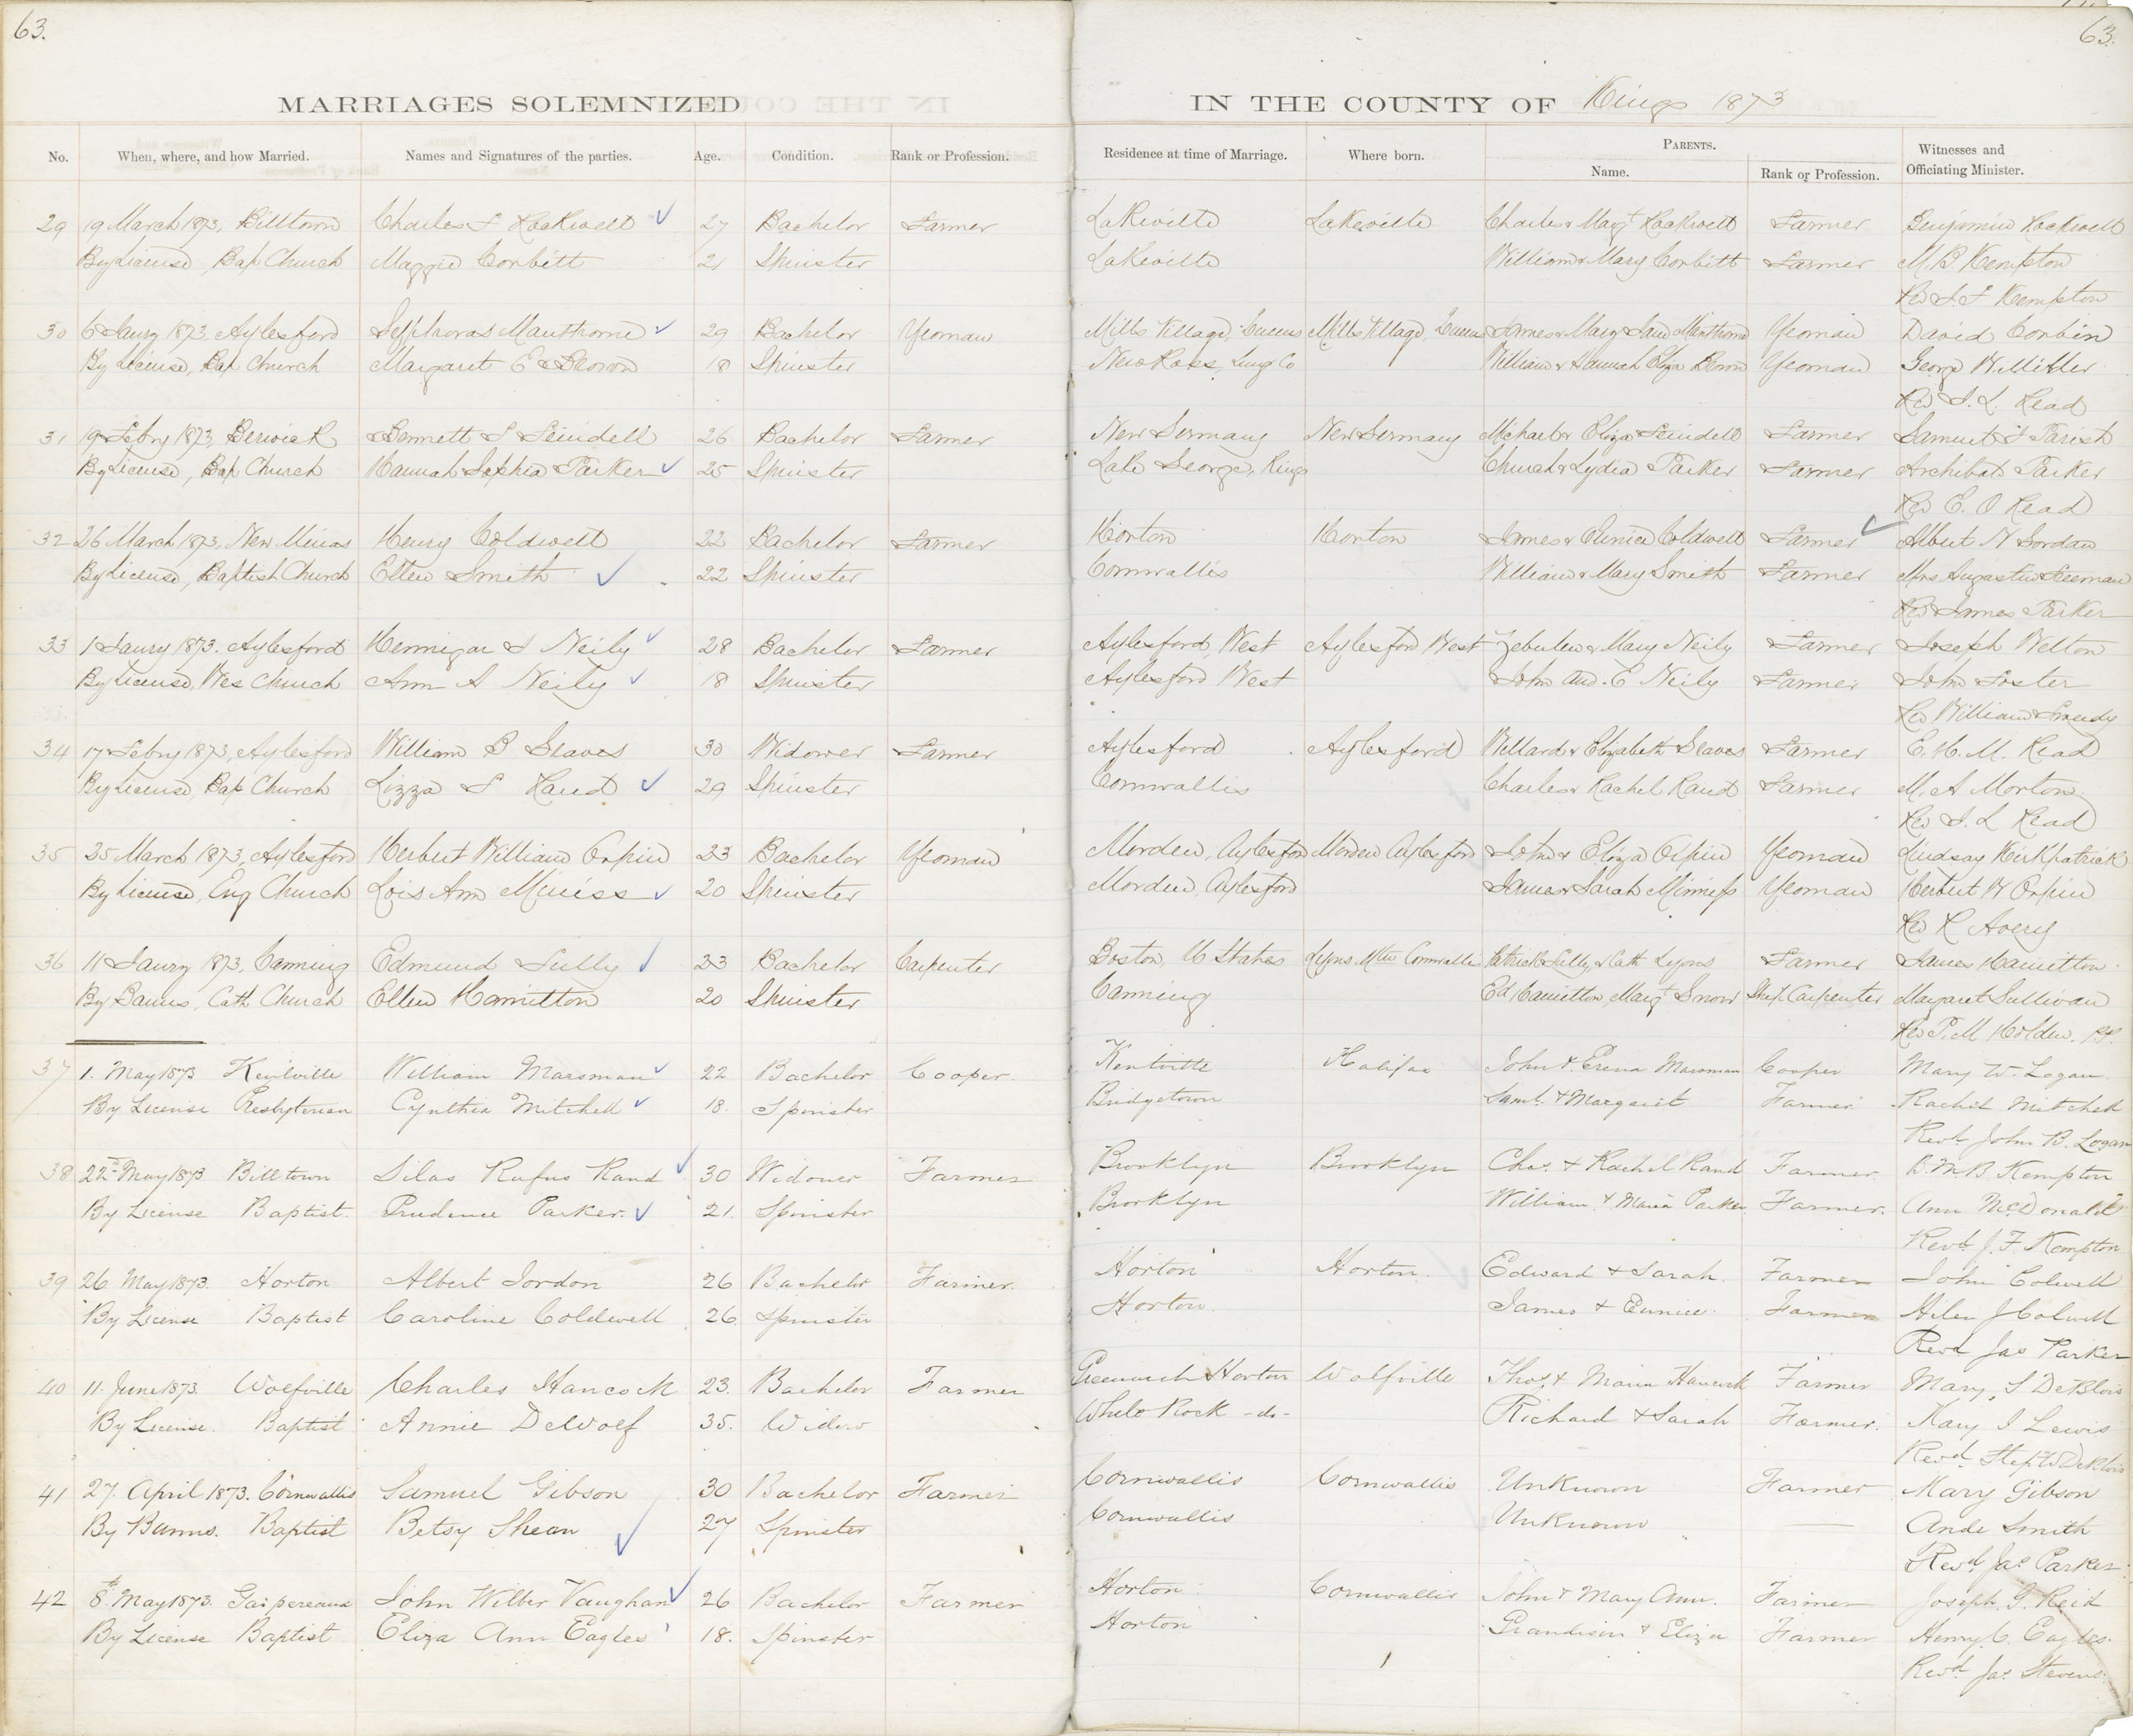 63.
63.
MARRIAGES SOLEMNIZED IN THE COUNTY OF Kings 1873
No. When, where, and how Married. Names and Signatures of the parties. Age. Condition. Rank or Profession. Residence at time of Marriage. Where born. PARENTS. Name. Rank or Profession. Witnesses and Officiating Minister.
29 19 March 1873, Billtown Charles F Rockwell 27 Bachelor Farmer Lakeville Lakeville Charles & Margt Rockwell Farmer Benjamin Rockwell
By License, Bap Church Maggie Corbitt 21 Spinster Lakeville William & Mary Corbitt Farmer M. B Kempton
Rev S. F Kempton
30 6 Jany 1873, Aylesford Manthorne 29 Bachelor Yeoman Mills Village, Queens Mills Village, Queens James & Mary Jane Manthorne Yeoman David Corbin
By License, Bap Church Margaret E Brown 18 Spinster New Ross, Lung Co William & Hannah Eliza Brown Yeoman George W. Miller
Rev J. L. Read
31 19 Febry 1873, Berwick Bennett S Seindell 26 Bachelor Farmer New Germany New Germany Michael & Eliza Seindell Farmer Samuel F Parish
By License, Bap Church Hannah Sophia Parker 25 Spinster Lake George, Kings Church & Lydia Parker Farmer Archibald Parker
Rev E. O Read
32 26 March 1873, New Minas Henry Coldwell 22 Bachelor Farmer Horton Horton James & Eunice Coldwell Farmer Albert N Jordan
By License, Baptist Church Ellen Smith 22 Spinster Cornwallis William & Mary Smith Farmer Mrs Freeman
Rev James Parker
33 1 Jany 1873. Aylesford Hennigar S Neily 28 Bachelor Farmer Aylesford, West Aylesford West Zebulen & Mary Neily Farmer Joseph Welton
By License, Wes Church Ann A Neily 18 Spinster Aylesford West John and. E Neily Farmer John Foster
Rev William
34 17 Febry 1873, Aylesford William B Graves 30 Widower Farmer Aylesford Aylesford Willard & Elizabeth Graves Farmer E. H. M. Read
By License, Bap Church Lizza S Rand 29 Spinster Cornwallis Charles & Rachel Rand Farmer M. A Morton
Rev J. L Read
35 25 March 1873, Aylesford Herbert William Orpin 23 Bachelor Yeoman Morden, Aylesford Morden Aylesford John & Eliza Orpin Yeoman Lindsay Kirkpatrick
By License, Eng Church Lois Ann Miniss 20 Spinster Morden, Aylesford James & Sarah Minniss Yeoman Herbert W Orpin
Rev R Avery
36 11 Jany 1873, Canning Edmund Lully 23 Bachelor Carpenter Boston, U States Lyons Mtn Cornwallis Patrick Lully, & Cath Lyons Farmer James Hamilton
By Banns, Cath Church Ellen Hamilton 20 Spinster Canning Ed Hamilton, Margt Snow Ship Carpenter Margaret Sullivan
Rev P. M Holden. P.P.
37 1. May 1873 Kentville William Marsman 22 Bachelor Cooper. Kentville Halifax John & Marsman Cooper Mary W. Logan
By License Presbyterian Cynthia Mitchell 18. Spinster Bridgetown Saml. & Margaret Farmer Rachel Mitchell
Revd. John B. Logan
38 22nd May 1873 Billtown Silas Rufus Rand 30 Widower Farmer Brooklyn Brooklyn Chas. & Rachel Rand Farmer B. McB. Kempton
By License Baptist. Prudence Parker. 21. Spinster Brooklyn William & Maria Parker Farmer. Ann McDonald
Revd. J. F. Kempton
39 26. May 1873. Horton Albert Jordon 26 Bachelor Farmer. Horton Horton. Edward & Sarah. Farmer John Colwell
By License Baptist Caroline Coldwell 26 Spinster Horton. James & Eunice. Farmer Helen J Colwell
Revd Jas Parker
40 11. June 1873. Wolfville Charles Hancock 23. Bachelor Farmer Greenwich Horton Wolfville Thos. & Maria Hancock Farmer Mary S DeBlois
By License. Baptist Annie DeWolf 35. Widow White Rock -do- Richard & Sarah Farmer. Mary I Lewis
Revd. Step. W DeBlois
41 27. April 1873. Cornwallis Samuel Gibson 30 Bachelor Farmer Cornwallis Cornwallis Unknown Farmer Mary Gibson
By Banns. Baptist Betsy Shean 27 Spinster Cornwallis Unknown — Ande Smith
Revd. Jas Parker
42 8th May 1873. Gaspereaux John Wilber Vaughan 26 Bachelor Farmer Horton Cornwallis John & Mary Ann. Farmer Joseph. G. Reid
By License Baptist Eliza Ann Eagles 18. Spinster Horton Grandisin & Eliza Farmer Henry. C. Eagles.
Revd. Jas. Stevens.